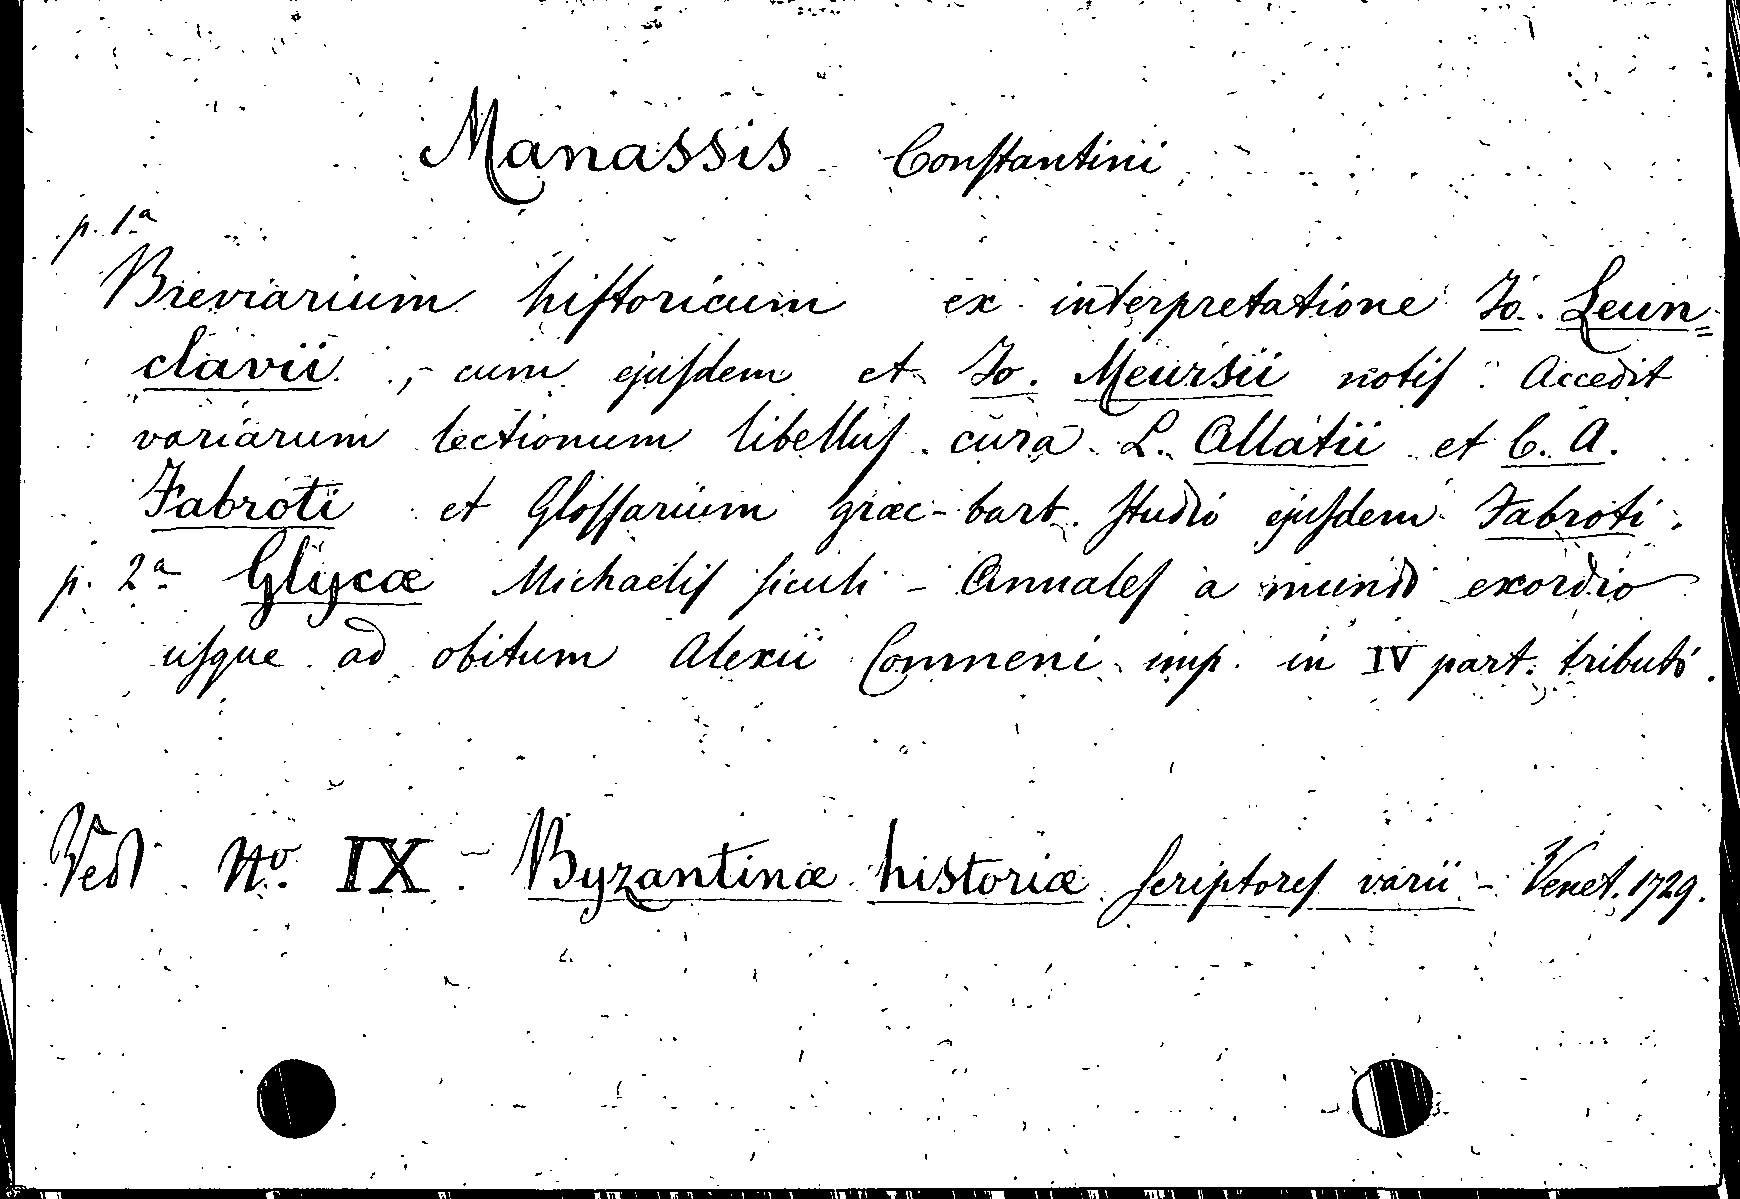 Manassis Conſtantini
p. 1ª
Breviarium hiſtoricum ex interpretatione Jo. Leun=
clavii, - cum ejuſdem et Jo. Meursii notiſ. Accedit
variarum lectionum libelluſ cura L. Allatii et C. A.
Fabroti et Gloſſarium græc-barb. ſtudio ejuſdem Fabroti.
p. 2ª Glycæ Michaeliſ ſiculi - Annaleſ a mundi exordio
uſque ad obitum Alexii Comneni imp. in IV part. tributi.
Vedi Nº. IX - Byzantinæ historiæ ſcriptoreſ varii - Venet. 1729.